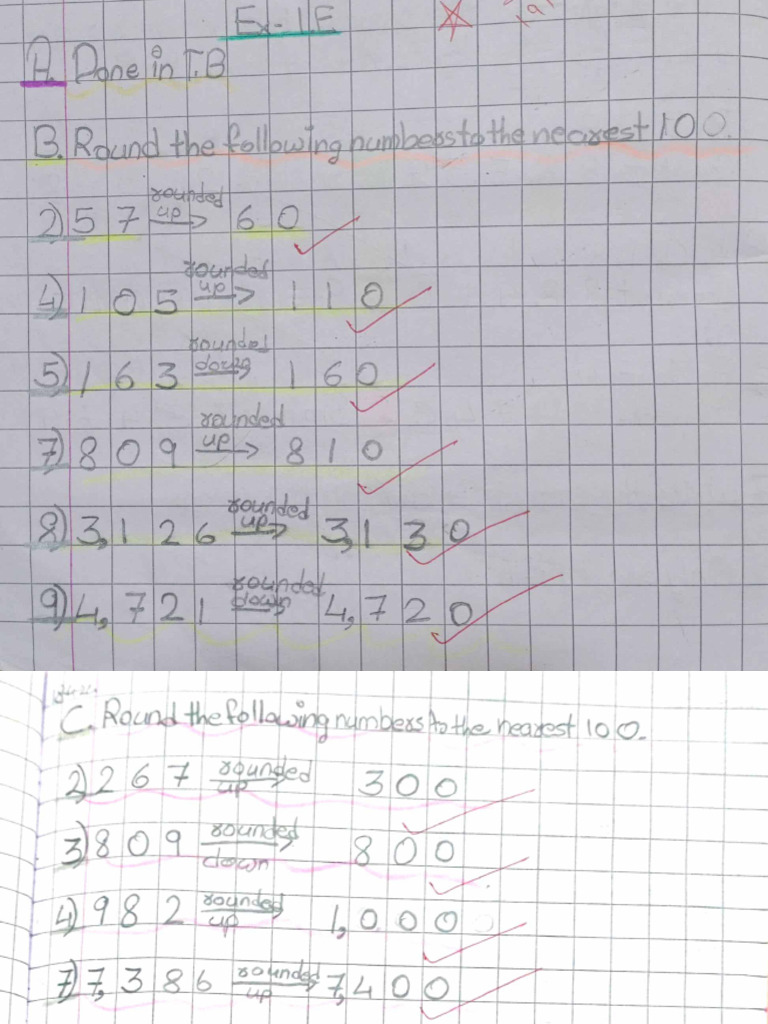 Ex-1E
A. Done in T.B
B. Round the following numbers to the nearest 100.
2) 57 rounded up → 60
4) 105 rounded up → 110
5) 163 rounded down → 160
7) 809 rounded up → 810
8) 3,126 rounded up → 3,130
9) 4,721 rounded down → 4,720
C. Round the following numbers to the nearest 100.
2) 267 rounded up → 300
3) 809 rounded down → 800
4) 982 rounded up → 1,000
7) 7,386 rounded up → 7,400